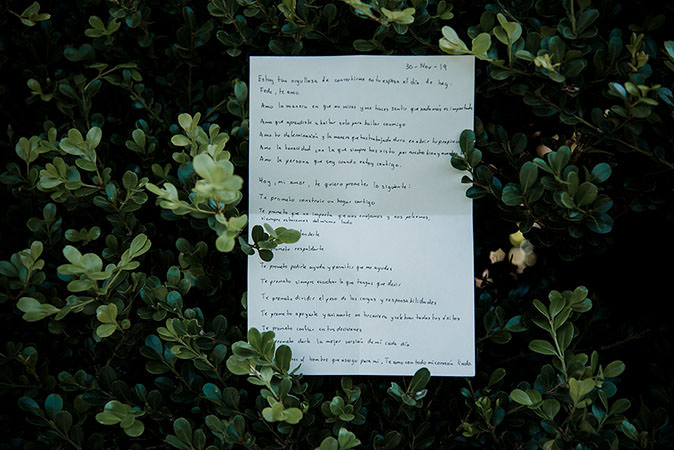 30-Nov-19
Estoy tan orgullosa de convertirme en tu esposa el día de hoy.
Fede, te amo.
Amo la manera en que me miras y me haces sentir que nada más es importante
Amo que aprendiste a bailar solo para bailar conmigo
Amo tu determinación y la manera que has trabajado duro en abrir tu propio
Amo la humildad con la que siempre has visto por nuestro bien y
Amo la persona que soy cuando estoy contigo.
Hoy, mi amor, te quiero prometer lo siguiente:
Te prometo construir un hogar contigo
Te prometo que no importa que nos enojemos y nos peleemos,
siempre estaremos del mismo lado
Te prometo respaldarte
Te prometo pedirte ayuda y permitir que me ayudes
Te prometo siempre escuchar lo que tengas que decir
Te prometo dividir el peso de las cargas y responsabilidades
Te prometo apoyarte y animarte en tu carrera y celebrar todos tus éxitos
Te prometo confiar en tus decisiones
prometo darte la mejor versión de mi cada día
el hombre que escogo para mi. Te amo con todo mi corazón